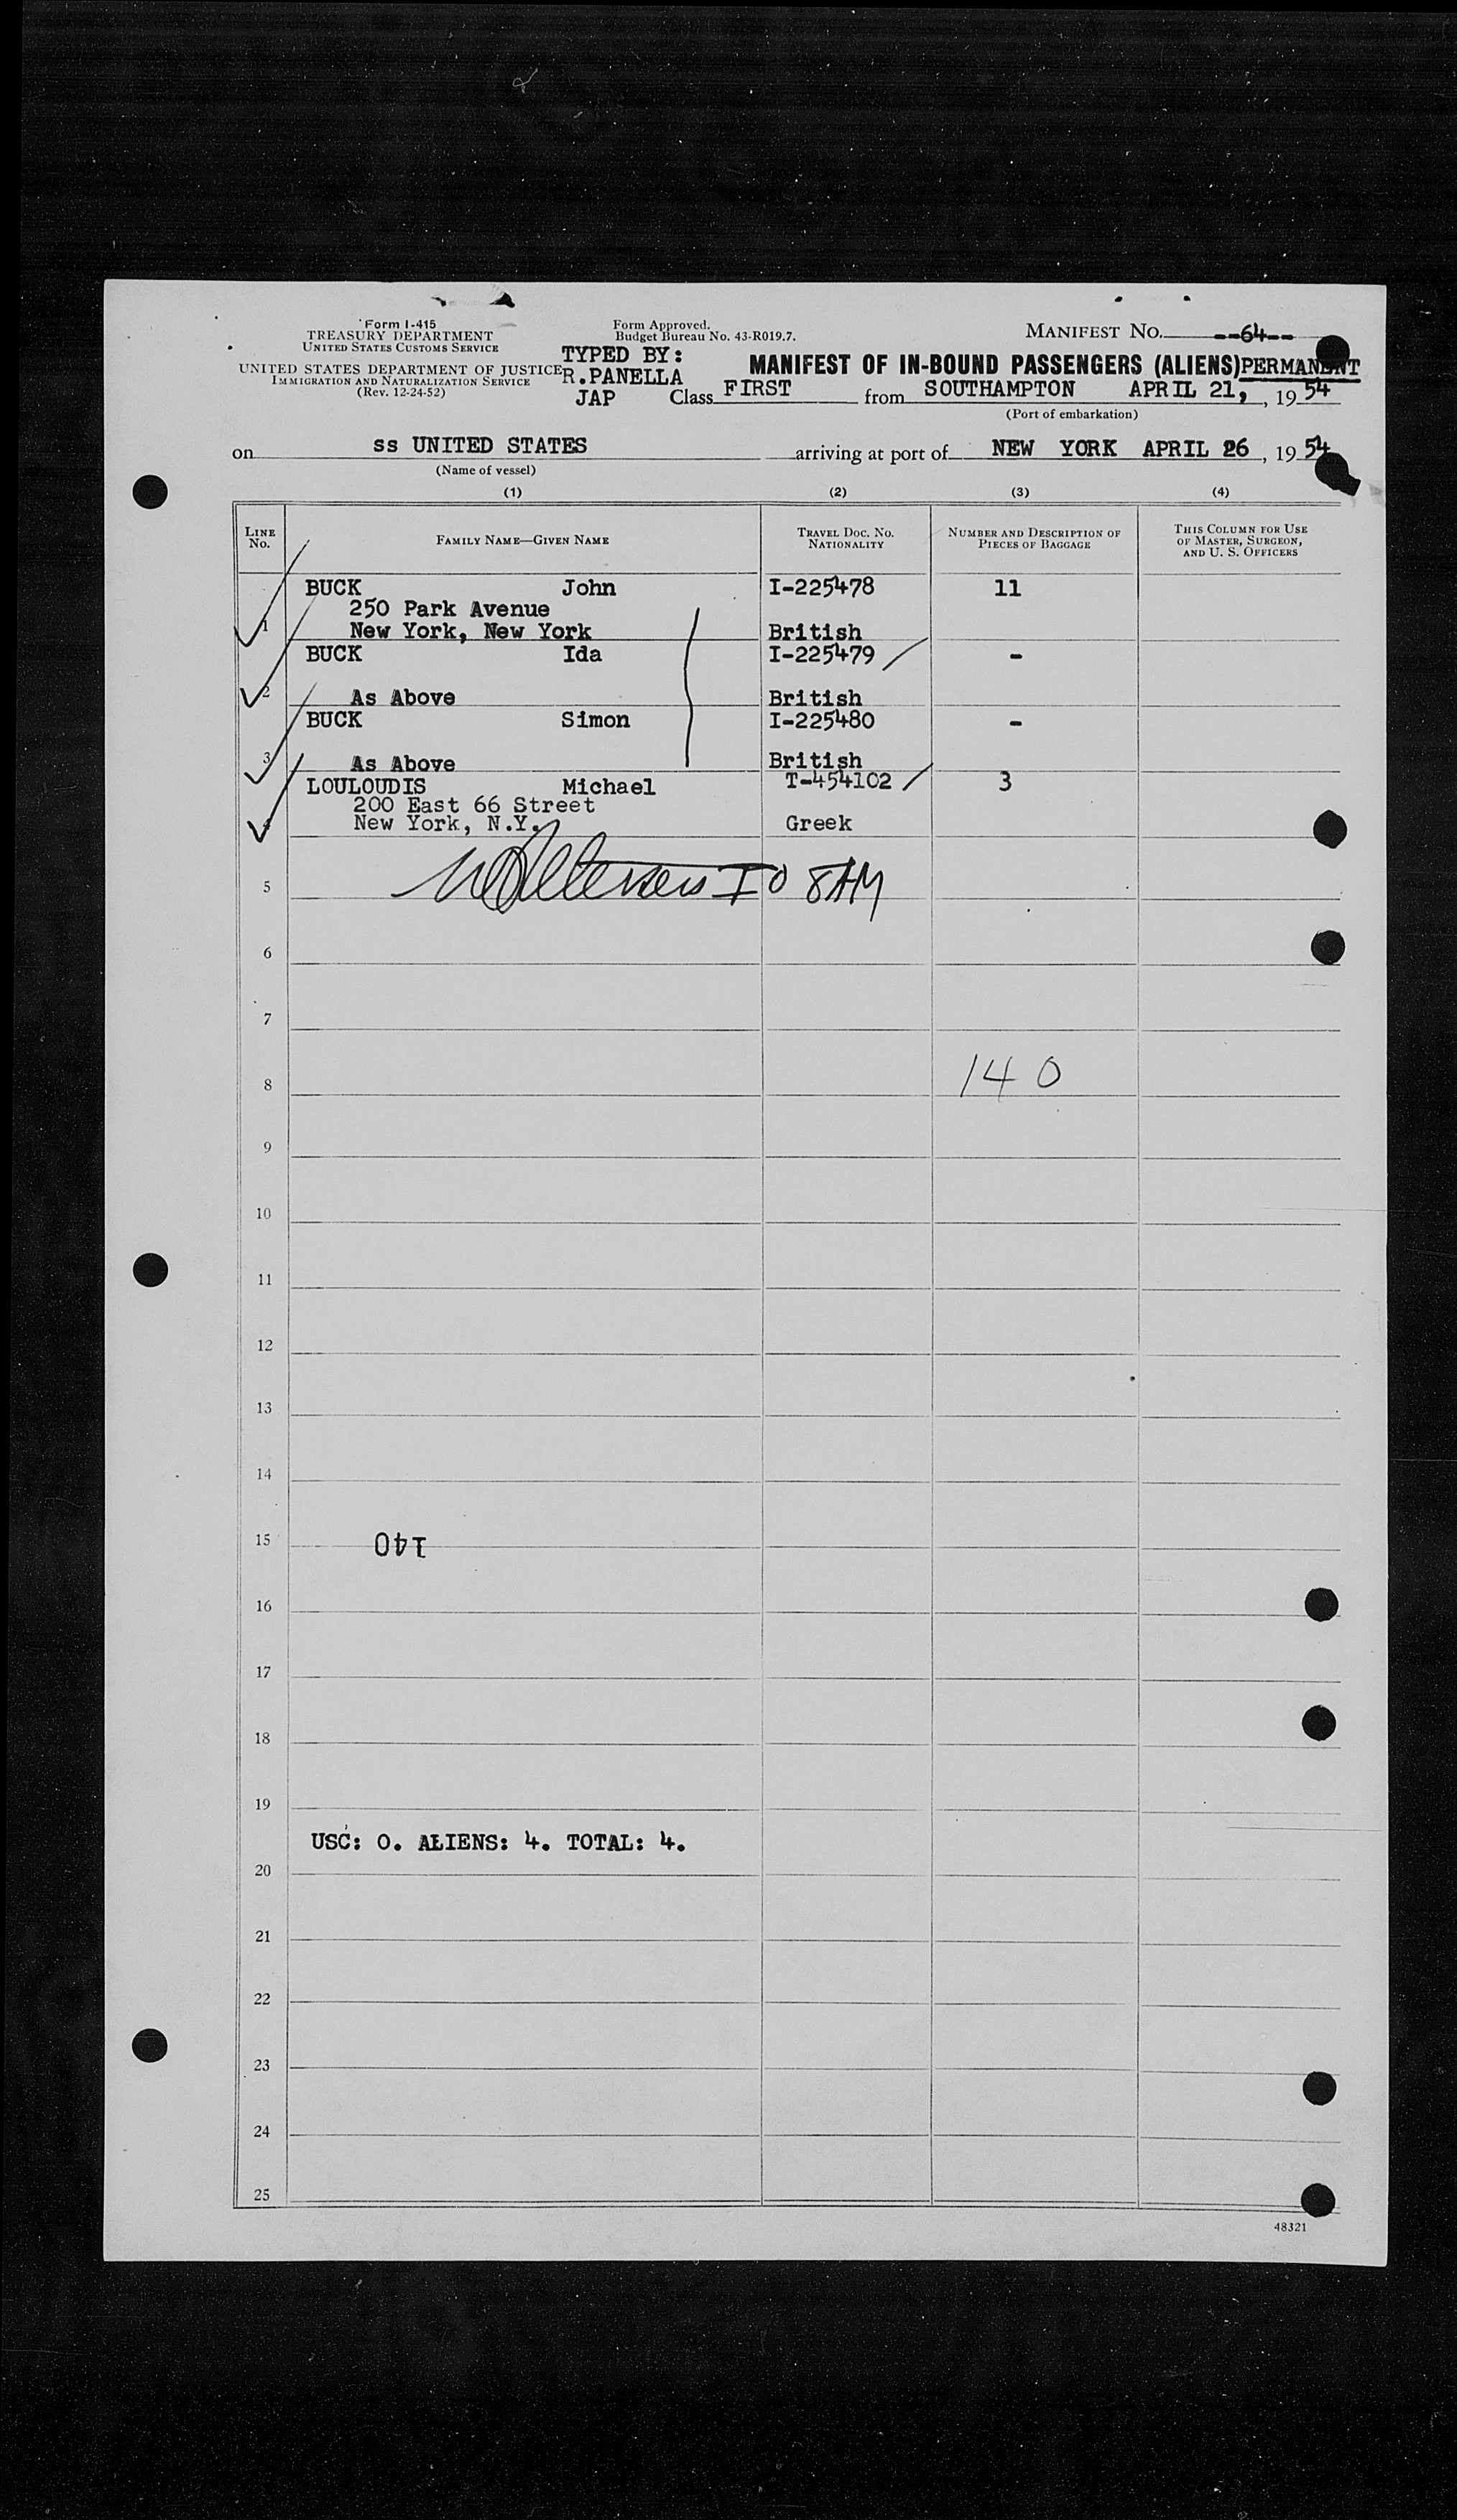 Form I-415
TREASURY DEPARTMENT
UNITED STATES CUSTOMS SERVICE
UNITED STATES DEPARTMENT OF JUSTICE
IMMIGRATION AND NATURALIZATION SERVICE
(Rev. 12-24-52)
Form Approved.
Budget Bureau No. 43-R019.7.
TYPED BY:
R.PANELLA
JAP
MANIFEST NO. --64--
MANIFEST OF IN-BOUND PASSENGERS (ALIENS) PERMANENT
Class FIRST from SOUTHAMPTON APRIL 21, , 19 54
(Port of embarkation)
on ss UNITED STATES arriving at port of NEW YORK APRIL 26 , 19 54
(Name of vessel)
(1) (2) (3) (4)
LINE No. FAMILY NAME—GIVEN NAME TRAVEL DOC. NO. NATIONALITY NUMBER AND DESCRIPTION OF PIECES OF BAGGAGE THIS COLUMN FOR USE OF MASTER, SURGEON, AND U. S. OFFICERS
BUCK John I-225478 11
250 Park Avenue
1 New York, New York British
BUCK Ida I-225479 -
2 As Above British
BUCK Simon I-225480 -
3 As Above British
LOULOUDIS Michael T-454102 3
200 East 66 Street
4 New York, N.Y. Greek
IO 8AM
5
6
7
14 0
8
9
10
11
12
13
14
15 140
16
17
18
19
USC: 0. ALIENS: 4. TOTAL: 4.
20
21
22
23
24
25
48321